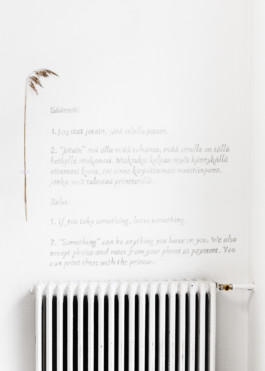 Säännöt:
1. Jos otat jotain, jätä
2. "Jotain" voi olla mitä tahansa, mitä sinulla on sillä
hetkellä mukanasi. Maksuksi kelpaa myös kännykällä
ottamasi kuva, tai
jonka voit tulostaa printterillä.
Rules:
1. If you take something, leave something.
2. "Something" can be anything you have on you. We also
accept photos and notes from your phone as payment. You
can print them with the printer.